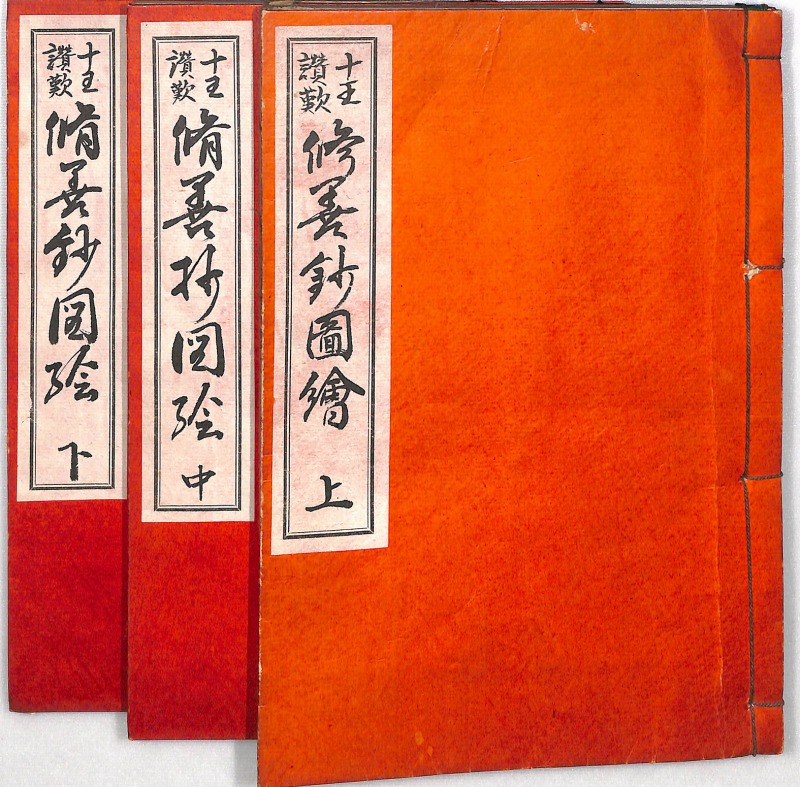 十王
讃歎
修善鈔圖繪
上
十王
讃歎
脩善抄図絵
中
十王
讃歎
脩善鈔図絵
下